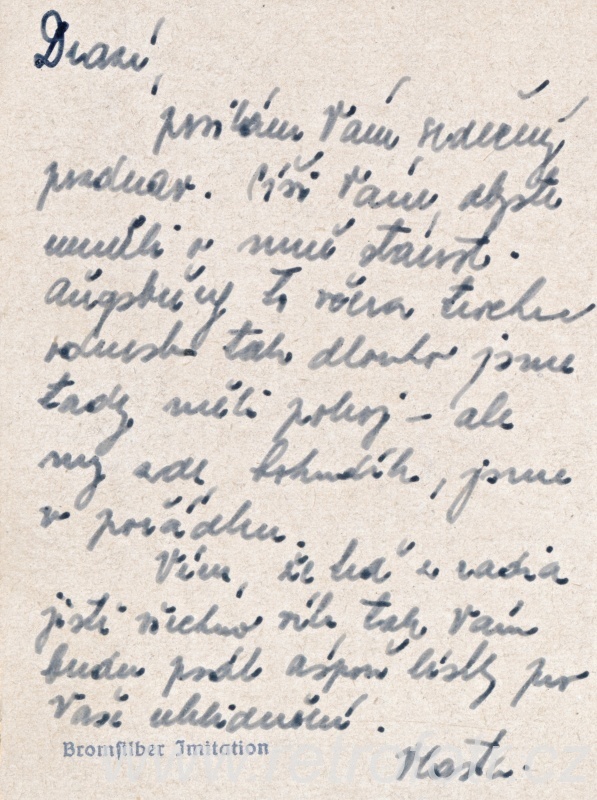 Drazí,
posílám Vám srdečný
pozdrav. Píši Vám, abyste
neměli o mně starost.
Augsburg to včera trochu
odnesl, tak dlouho jsme
tady měli pokoj – ale
my zde, bohudík, jsme
v pořádku.
Vím, že teď z radia
jistě všechno víte, tak Vám
budu psát aspoň lístky pro
Vaše uklidnění.
Bromsilber Imitation
Vlasta.